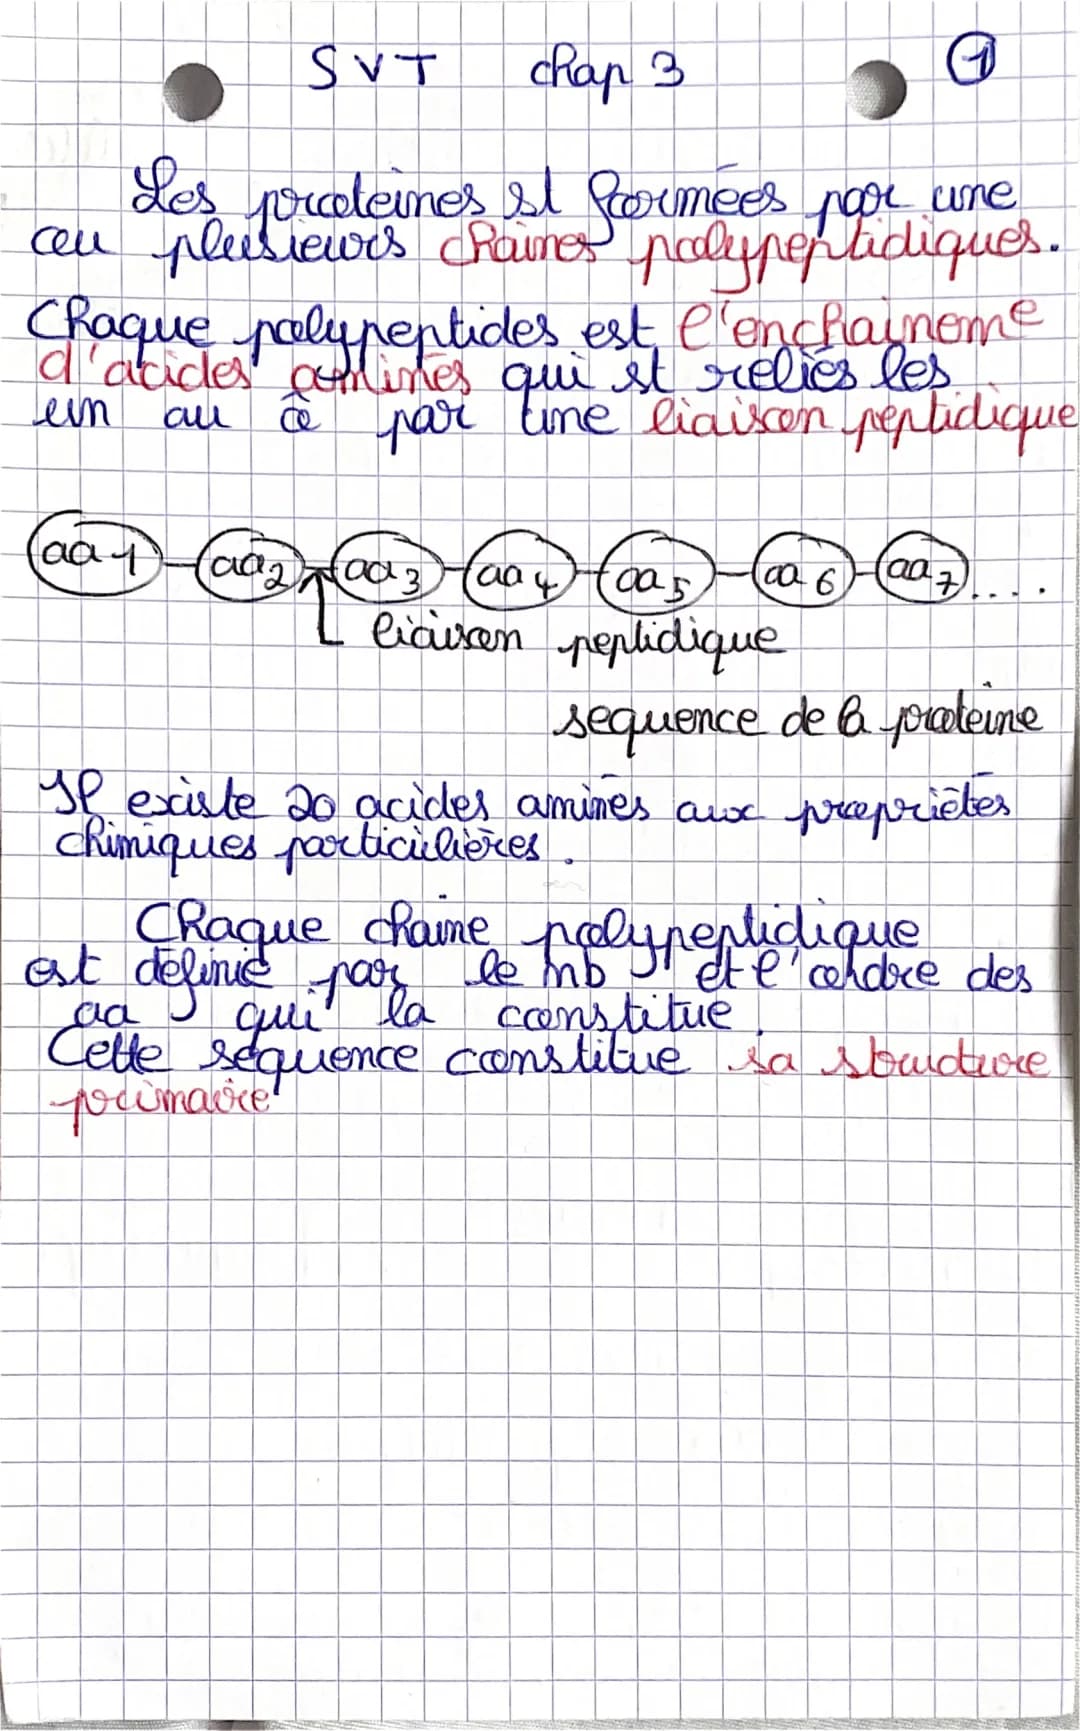 SVT chap 3 1
Les proteines st formées par une
ou plusieurs chaines polypeptidiques.
Chaque polypeptides est l'enchaineme
d'acides aminés qui st reliés les
un au par une liaison peptidique
aa 1 aa2 aa3 aa4 aa5 aa 6 aa7....
liaison peptidique
sequence de la proteine
Il existe 20 acides aminés aux propriétés
chimiques particulières.
Chaque chaine polypeptidique
est définie par le nb et l'ordre des
aa qui la constitue.
Cette séquence constitue sa structure
primaire